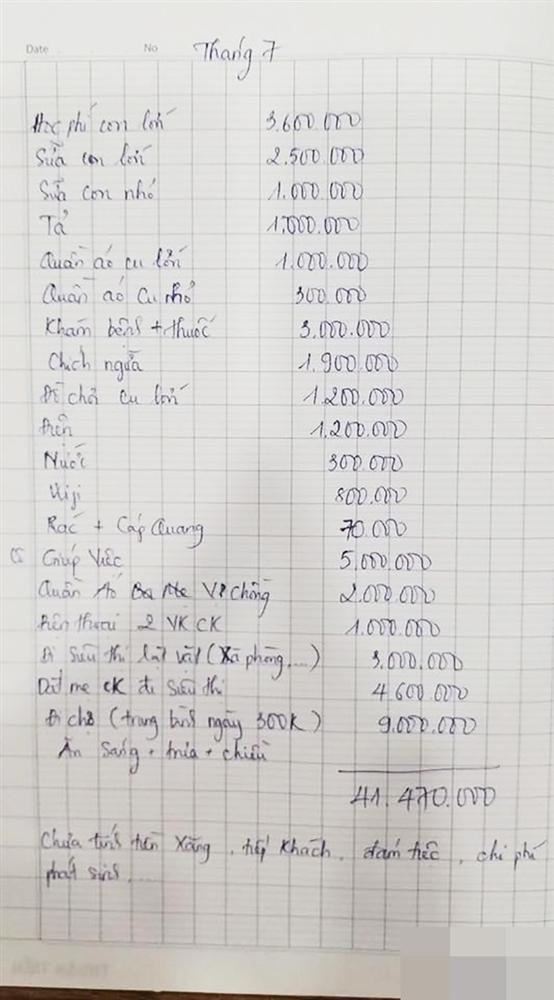 Date No Tháng 7
Học phí con lớn 3.600.000
Sữa con lớn 2.500.000
Sữa con nhỏ 1.000.000
Tả 1,000.000
Quần áo cu lớn 1.000.000
Quần áo cu nhỏ 300.000
Khám bệnh + thuốc 3.000.000
Chích ngừa 1.900.000
Đồ chơi cu lớn 1.200.000
Điện 1.200.000
Nước 300.000
800.000
Rác + Cáp Quang 70.000
Giúp Việc 5,000.000
Quần Áo Ba Mẹ Vợ chồng 2.000.000
Điện thoại 2 VK CK 1.000.000
Đi siêu thị lặt vặt (Xà phòng,...) 3.000.000
Dắt mẹ CK đi siêu thị 4.600.000
Đi chợ (trung bình ngày 300K) 9.000.000
Ăn sáng + trưa + chiều
41.470.000
Chưa tính tiền Xăng, tiếp khách, đám tiệc, chi phí
phát sinh....